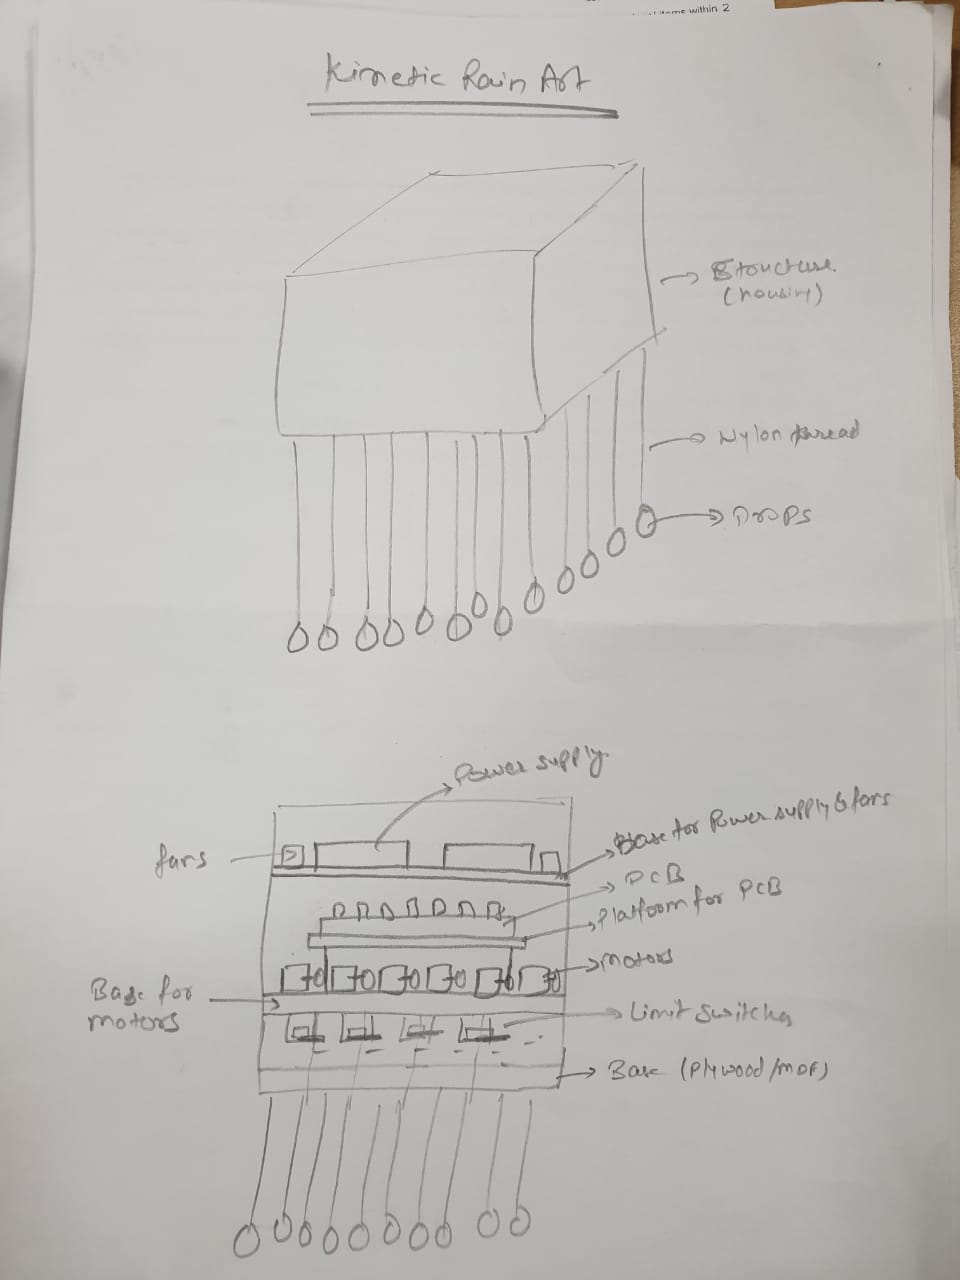 items within 2
Kinetic Rain Art
Structure
(housing)
Nylon thread
Drops
Power supply
Base for Power supply & fans
fans
PCB
Platform for PCB
Motors
Base for
motors
Limit Switches
Base (Plywood/MDF)